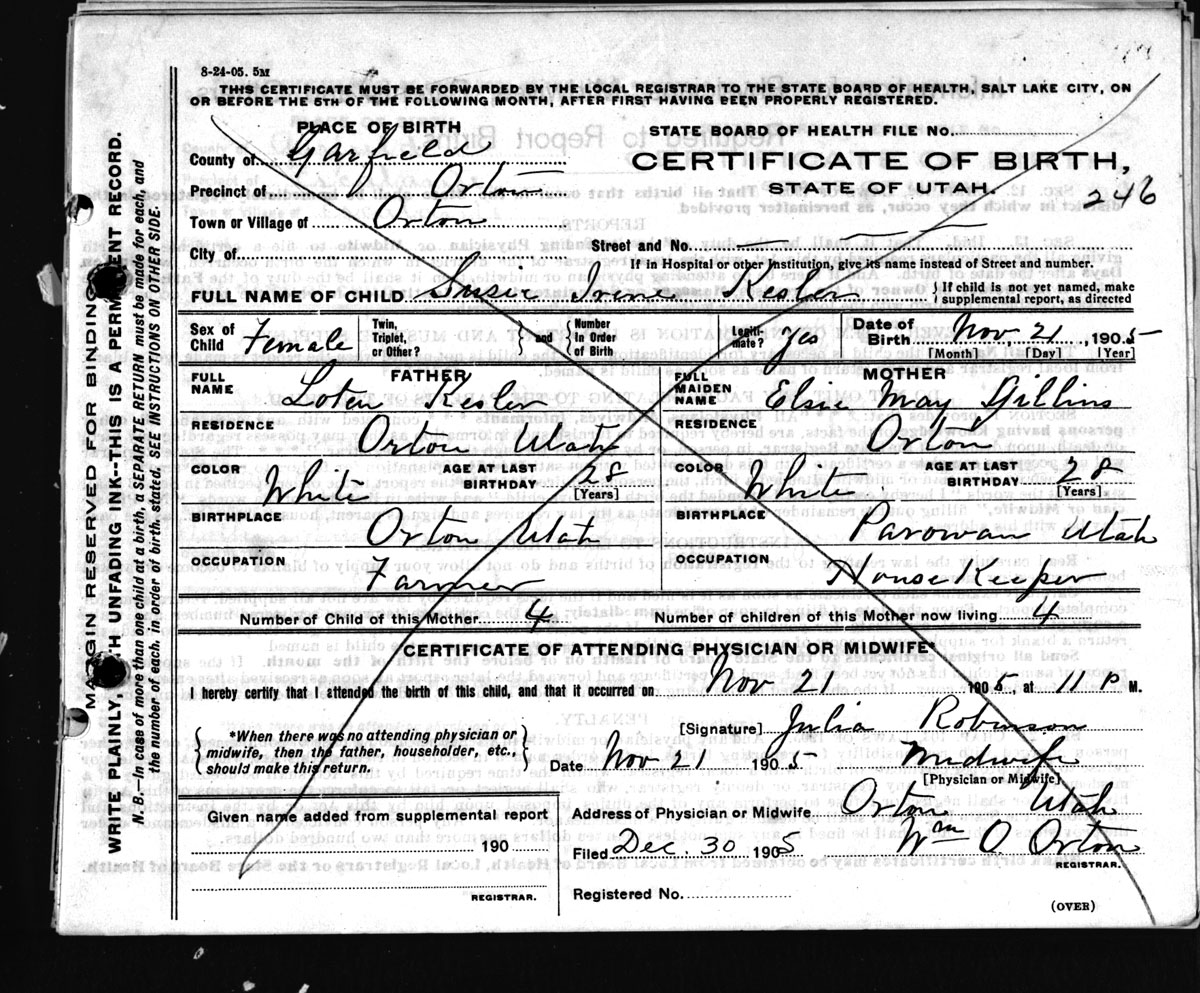 8-24-05. 5M
THIS CERTIFICATE MUST BE FORWARDED BY THE LOCAL REGISTRAR TO THE STATE BOARD OF HEALTH, SALT LAKE CITY, ON
OR BEFORE THE 5TH OF THE FOLLOWING MONTH, AFTER FIRST HAVING BEEN PROPERLY REGISTERED.
PLACE OF BIRTH
STATE BOARD OF HEALTH FILE No.
County of Garfield
CERTIFICATE OF BIRTH,
Precinct of Orton
STATE OF UTAH.
246
Town or Village of Orton
City of
Street and No. — — —
If in Hospital or other institution, give its name instead of Street and number.
FULL NAME OF CHILD Susie Irene Kesler { If child is not yet named, make supplemental report, as directed
Sex of Child Female Twin, Triplet, or Other? } and { Number in Order of Birth Legiti-mate? Yes Date of Birth Nov. 21, 1905
[Month] [Day] [Year]
FATHER
FULL NAME Loten Kesler
RESIDENCE Orton Utah
COLOR White AGE AT LAST BIRTHDAY 28 [Years]
BIRTHPLACE Orton Utah
OCCUPATION Farmer
MOTHER
FULL MAIDEN NAME Elsie May Gillins
RESIDENCE Orton
COLOR White AGE AT LAST BIRTHDAY 28 [Years]
BIRTHPLACE Parowan Utah
OCCUPATION House Keeper
Number of Child of this Mother 4 Number of children of this Mother now living 4
CERTIFICATE OF ATTENDING PHYSICIAN OR MIDWIFE*
I hereby certify that I attended the birth of this child, and that it occurred on Nov 21 1905 at 11 P M.
*When there was no attending physician or
midwife, then the father, householder, etc.,
should make this return.
[Signature] Julia Robinson
Date Nov 21 1905 Midwife
[Physician or Midwife]
Given name added from supplemental report
190
REGISTRAR.
Address of Physician or Midwife Orton Utah
Filed Dec. 30 1905 Wm O Orton
REGISTRAR.
Registered No.
(OVER)
MARGIN RESERVED FOR BINDING
WRITE PLAINLY, WITH UNFADING INK--THIS IS A PERMANENT RECORD.
N. B.—In case of more than one child at a birth, a SEPARATE RETURN must be made for each, and
the number of each, in order of birth, stated. SEE INSTRUCTIONS ON OTHER SIDE.